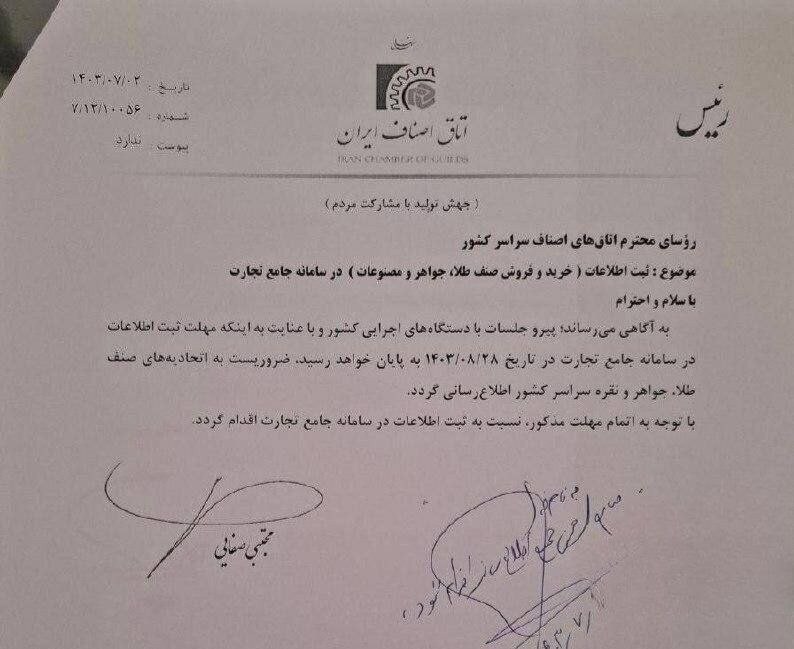 رئیس
اتاق اصناف ایران
IRAN CHAMBER OF GUILDS
تاریخ : ۱۴۰۳/۰۷/۰۲
شماره : ۷/۱۲/۱۰۰۵۶
پیوست : ندارد
( جهش تولید با مشارکت مردم )
رؤسای محترم اتاق‌های اصناف سراسر کشور
موضوع : ثبت اطلاعات ( خرید و فروش صنف طلا، جواهر و مصنوعات ) در سامانه جامع تجارت
با سلام و احترام
به آگاهی می‌رساند؛ پیرو جلسات با دستگاه‌های اجرایی کشور و با عنایت به اینکه مهلت ثبت اطلاعات
در سامانه جامع تجارت در تاریخ ۱۴۰۳/۰۸/۲۸ به پایان خواهد رسید، ضروریست به اتحادیه‌های صنف
طلا، جواهر و نقره سراسر کشور اطلاع‌رسانی گردد.
با توجه به اتمام مهلت مذکور، نسبت به ثبت اطلاعات در سامانه جامع تجارت اقدام گردد.
مجتبی صفایی